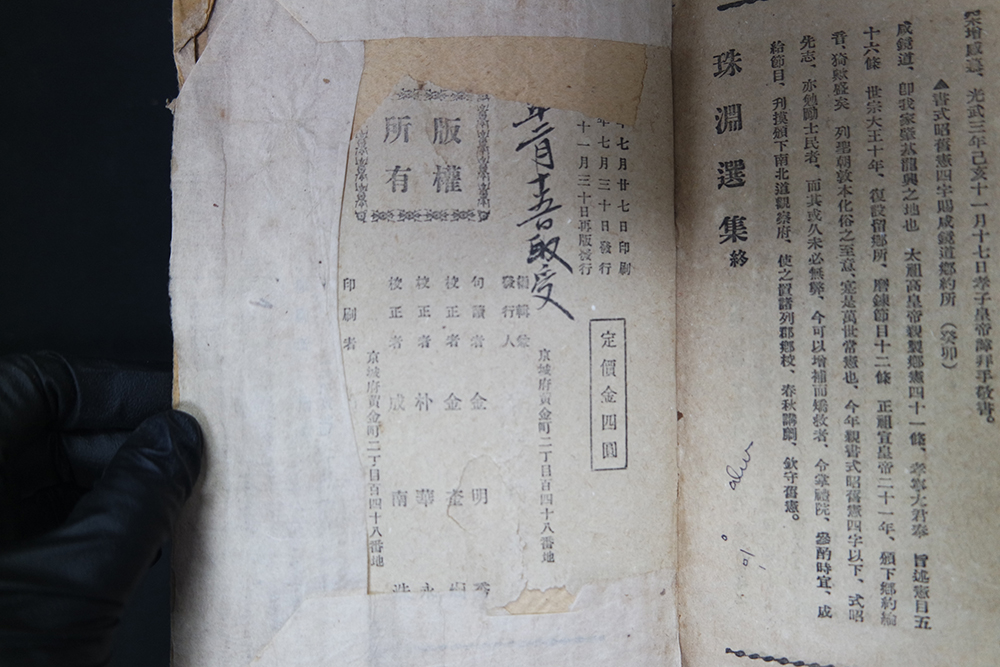 光武三年己亥十一月十七日孝子皇帝
拜手敬書。
▲書式昭舊憲四字賜咸鏡道鄕約所 (癸卯)
咸鏡道、卽我家肇基龍興之地也 太祖高皇帝親製鄕憲四十一條、孝寧大君奉 旨述憲目五
十六條 世宗大王十年、復設留鄕所、磨鍊節目十二條 正祖宣皇帝二十一年、頒下鄕約綸
音、猗歟盛矣 列聖朝敦本化俗之至意、寔是萬世常憲也、今年親書式昭舊憲四字以下、式昭
先志、亦勉勵士民者、而其或久未必無弊、今可以增補而矯救者、令掌禮院、參酌時宜、成
給節目、刊摸頒下南北道觀察府、使之置諸列郡鄕校、春秋講
、欽守舊憲。
珠淵選集 終
七月廿七日印刷
年七月三十日發行
十一月三十日再版發行
定價金四圓
月十五日取受
版權
所有
編輯兼
發行人
京城府黃金町二丁目百四十八番地
句讀者 金 明
校正者 金
校正者 朴 華 永
校正者 成 南
印刷者
京城府黃金町二丁目百四十八番地